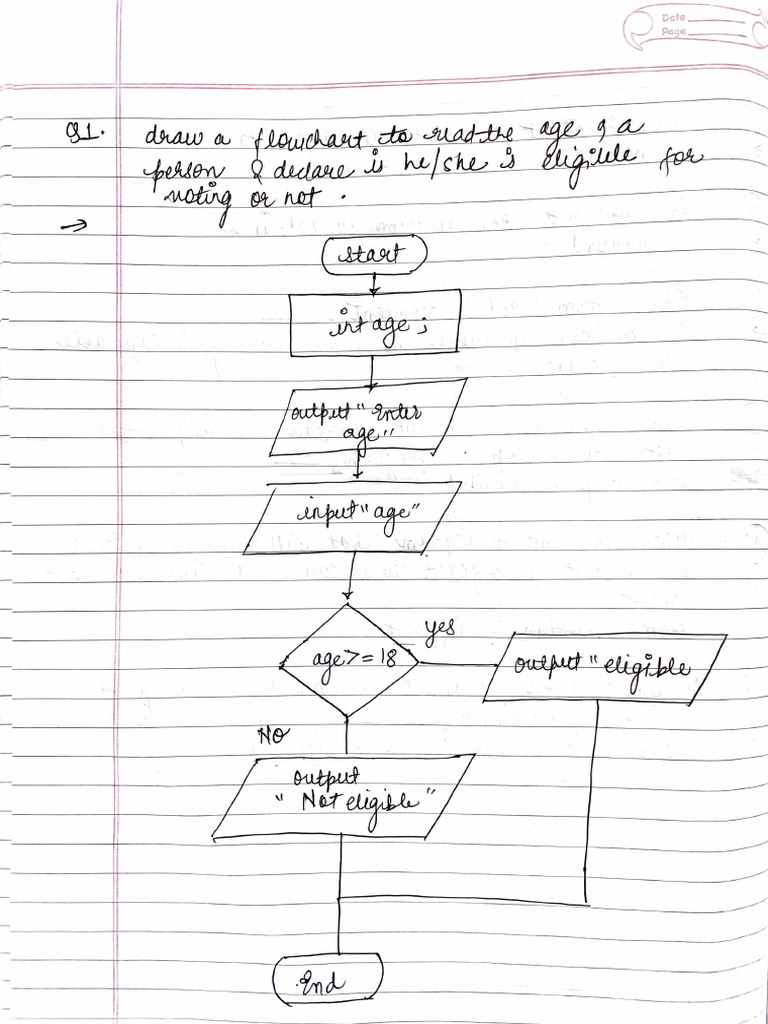 Date
Page
Q1. draw a flowchart to read the age of a
person & declare is he/she is eligible for
voting or not.
→
start
int age ;
output "Enter
age"
input "age"
yes
age >= 18
output "eligible
NO
output
"Not eligible"
End